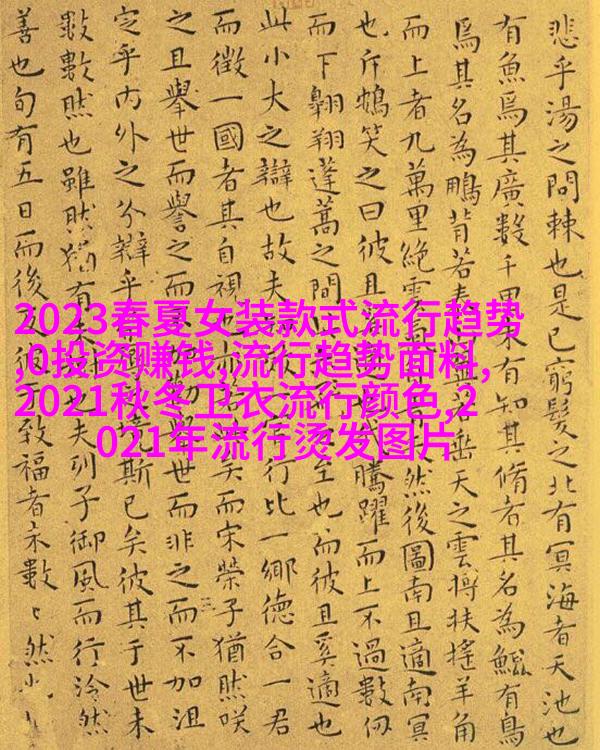 悲乎湯之問棘也是已窮髮之北有冥海者天池也
有魚焉其廣數千里未有知其脩者其名為鯤有鳥
焉其名為鵬背若泰若垂天之雲摶扶搖羊角
而上者九萬里絕雲然後圖南且適南冥
也斥鴳笑之曰彼且騰躍而上不過數仞
而下翱翔蓬蒿之間至也而彼且奚適也
此小大之辯也故夫行比一鄉德合一君
而徵一國者其自視也矣而宋榮子猶然咲
之且舉世而譽之而舉世而非之而不加沮
定乎内外之分辯乎境斯已矣彼其于世未
數數然也雖然猶有未也夫列子御風而行泠然
善也旬有五日而後反彼于致福者未數〻然也
2023春夏女装款式流行趋势
,0投资赚钱,流行趋势面料,
2021秋冬卫衣流行颜色,2
021年流行烫发图片